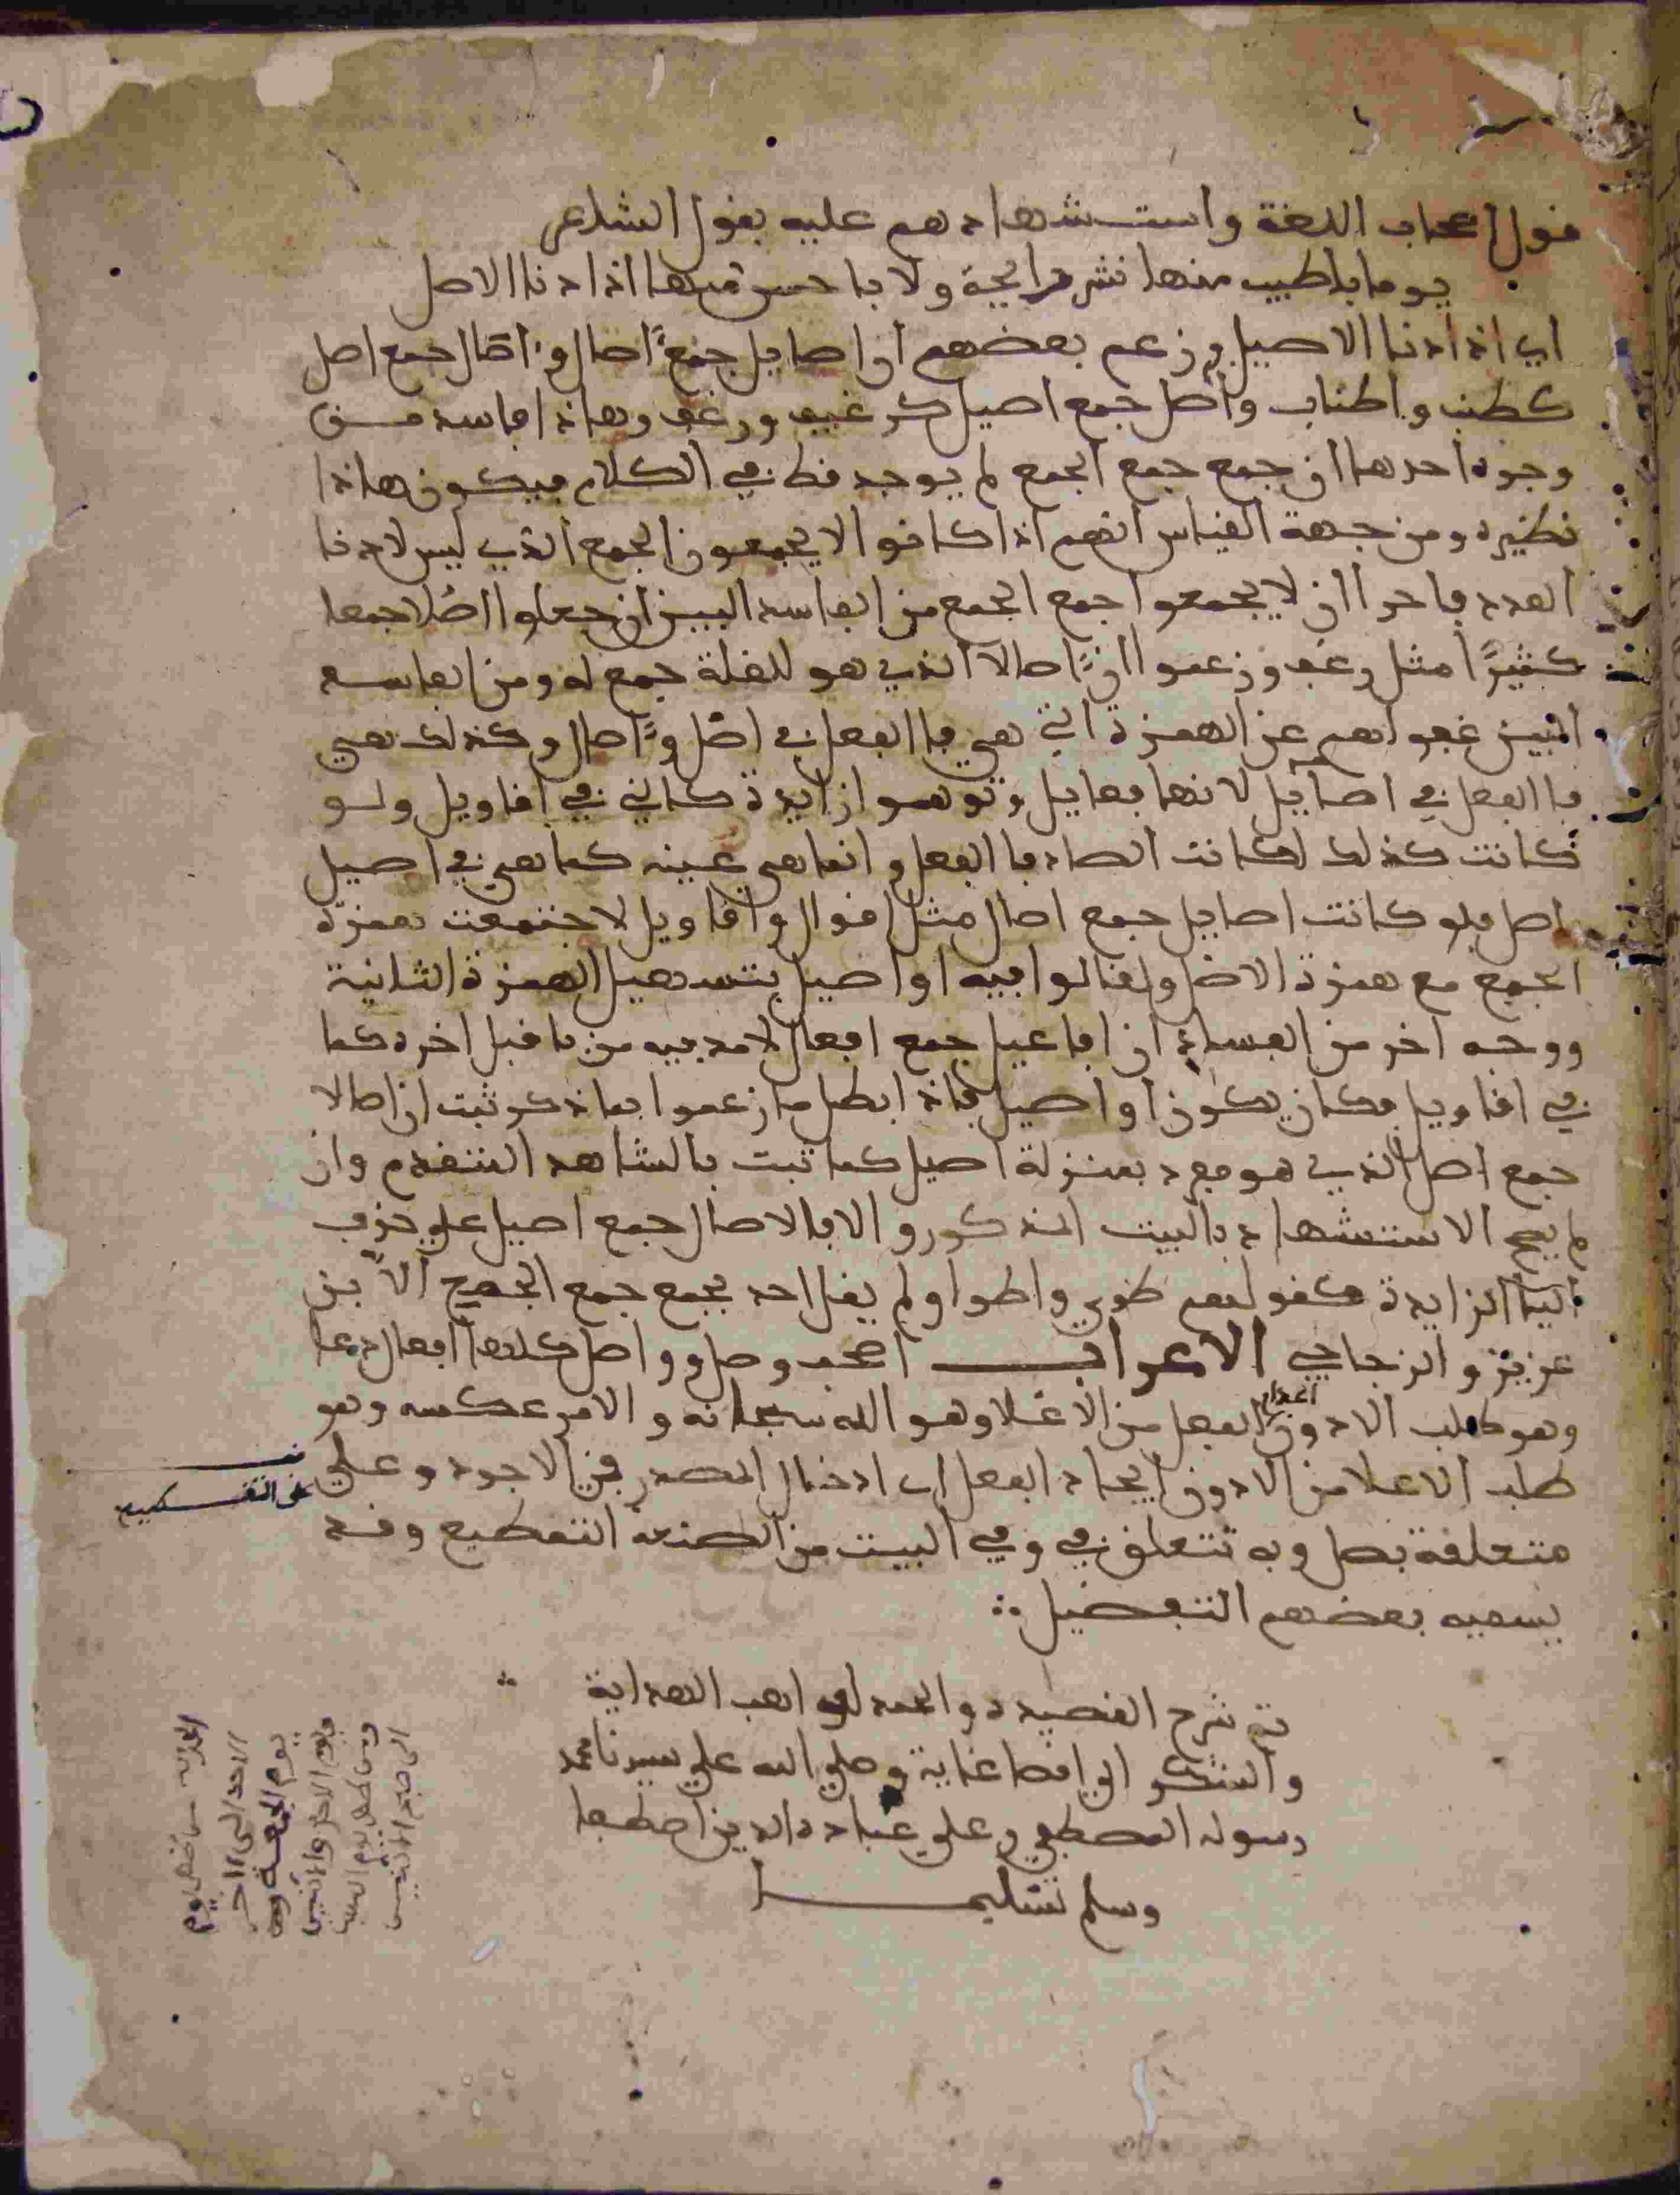 قول اصحاب اللغة واستشهادهم عليه بقول الشاعر
يوما باطيب منها نشر رايحة ولا باحسن منها اذ ادنا الاصل
اي اذ ادنا الاصيل وزعم بعضهم ان اصايل جمع اصال واصال جمع اصل
كطنب واطناب واصل جمع اصيل كرغيف ورغف وهاذا فاسد من
وجوه احدها ان جمع جمع الجمع لم يوجد قط في الكلام فيكون هاذا
نظيره ومن جهة القياس انهم اذا كانوا لا يجمعون الجمع الذي ليس لادنا
العدد فاحرا ان لا يجمعوا جمع الجمع من الفاسد البين ان جعلوا اصلا جمعا
كثيرا مثل رغف وزعموا ان اصالا الذي هو للقلة جمع له ومن الفاسد
البين غفولهم عن الهمزة التي هي فا الفعل في اصل واصال وكذلك هي
فا الفعل في اصايل لانها فعايل وتوهموا زايدة كالتي في اقاويل ولو
كانت كذلك لكانت الصاد فا الفعل وانما هي عينه كما هي في اصيل
اصل فلو كانت اصايل جمع اصال مثل اقوال واقاويل لاجتمعت همزة
الجمع مع همزة الاصل ولقالوا فيه اواصيل بتسهيل الهمزة الثانية
ووجه اخر من الفساد ان افاعيل جمع افعال لا مد فيه من ما قبل اخره كما
في اقاويل فكان يكون اواصيل فاذ ابطل ما زعموا بما ذكر ثبت ان اصالا
جمع اصل الذي هو مفرد بمنزلة اصيل كما ثبت بالشاهد المتقدم وان
لم يصح الاستشهاد بالبيت المذكور والا فالاصال جمع اصيل على حذف
اليا الزايدة كقولهم طوي واطوا ولم يقل احد بجمع جمع الجمع الا بن
عزيز والزجاجي الاعراب اصحب وصل وواصل كلها افعال دعا
وهو طلب الادون الفعل من الاعلا وهو الله سبحانه والامر عكسه وهو
طلب الاعلا من الادون ايجاد الفعل اي ادخال المصدر في الاجود وعلى
متعلقة بصل وبه تتعلق في وفي البيت من الصنعة التقطيع وقد
يسميه بعضهم التفصيل
تم شرح القصيد والحمد لواهب الهداية
والشكر الى اقصا غاية وصلى الله على سيدنا محمد
رسوله المصطفى وعلى عباده الذين اصطفا
وسلم تسليما